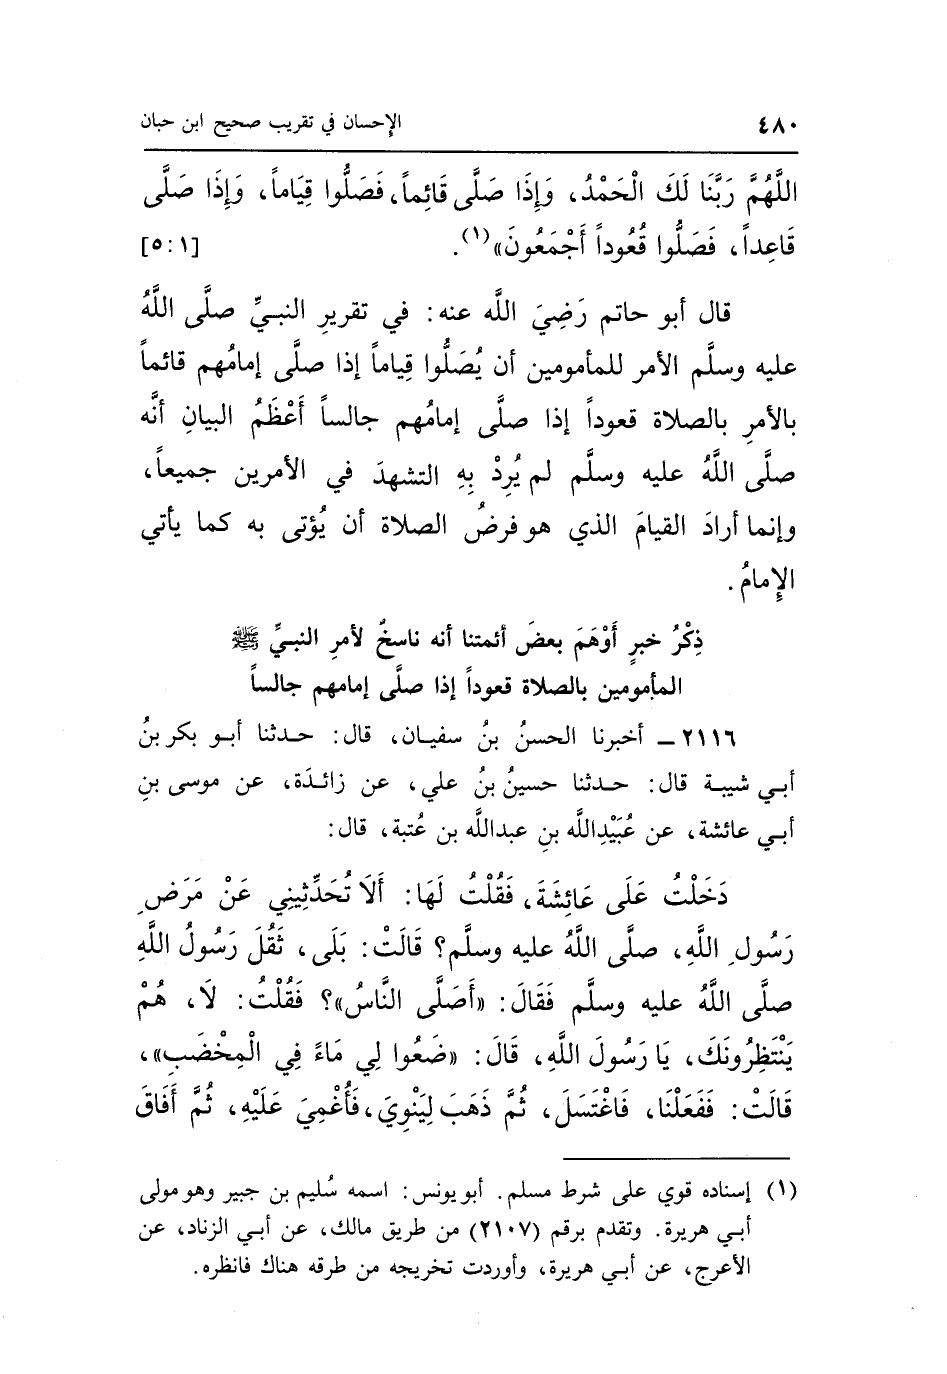 ٤٨٠ الإحسان في تقريب صحيح ابن حبان
اللَّهُمَّ رَبَّنَا لَكَ الْحَمْدُ، وَإِذَا صَلَّى قَائِماً، فَصَلُّوا قِيَاماً، وَإِذَا صَلَّى
قَاعِداً، فَصَلُّوا قُعُوداً أَجْمَعُونَ»(١). [٥:١]
قال أبو حاتم رَضِيَ اللَّه عنه: في تقريرِ النبيِّ صلَّى اللَّهُ
عليه وسلَّم الأمر للمأمومين أن يُصَلُّوا قِياماً إذا صلَّى إمامُهم قائماً
بالأمرِ بالصلاة قعوداً إذا صلَّى إمامُهم جالساً أَعْظَمُ البيانِ أنَّه
صلَّى اللَّهُ عليه وسلَّم لم يُرِدْ بِهِ التشهدَ في الأمرين جميعاً،
وإنما أرادَ القيامَ الذي هو فرضُ الصلاة أن يُؤتى به كما يأتي
الإِمامُ.
ذِكْرُ خبرٍ أَوْهَمَ بعضَ أئمتنا أنه ناسخٌ لأمرِ النبيِّ ﷺ
المأمومين بالصلاة قعوداً إذا صلَّى إمامهم جالساً
٢١١٦ ـ أخبرنا الحسنُ بنُ سفيان، قال: حدثنا أبو بكر بنُ
أبي شيبة قال: حدثنا حسينُ بنُ علي، عن زائدَة، عن موسى بنِ
أبي عائشة، عن عُبَيْدِاللَّه بنِ عبداللَّه بن عُتبة، قال:
دَخَلْتُ عَلَى عَائِشَةَ، فَقُلْتُ لَهَا: أَلَا تُحَدِّثِينِي عَنْ مَرَضِ
رَسُولِ اللَّهِ، صلَّى اللَّهُ عليه وسلَّم؟ قَالَتْ: بَلَى، ثَقُلَ رَسُولُ اللَّهِ
صلَّى اللَّهُ عليه وسلَّم فَقَالَ: «أَصَلَّى النَّاسُ»؟ فَقُلْتُ: لَا، هُمْ
يَنْتَظِرُونَكَ، يَا رَسُولَ اللَّهِ، قَالَ: «ضَعُوا لِي مَاءً فِي الْمِخْضَبِ»،
قَالَتْ: فَفَعَلْنَا، فَاغْتَسَلَ، ثُمَّ ذَهَبَ لِيَنْوِيَ، فَأُغْمِيَ عَلَيْهِ، ثُمَّ أَفَاقَ
(١) إسناده قوي على شرط مسلم. أبو يونس: اسمه سُليم بن جبير وهو مولى
أبي هريرة. وتقدم برقم (٢١٠٧) من طريق مالك، عن أبي الزناد، عن
الأعرج، عن أبي هريرة، وأوردت تخريجه من طرقه هناك فانظره.